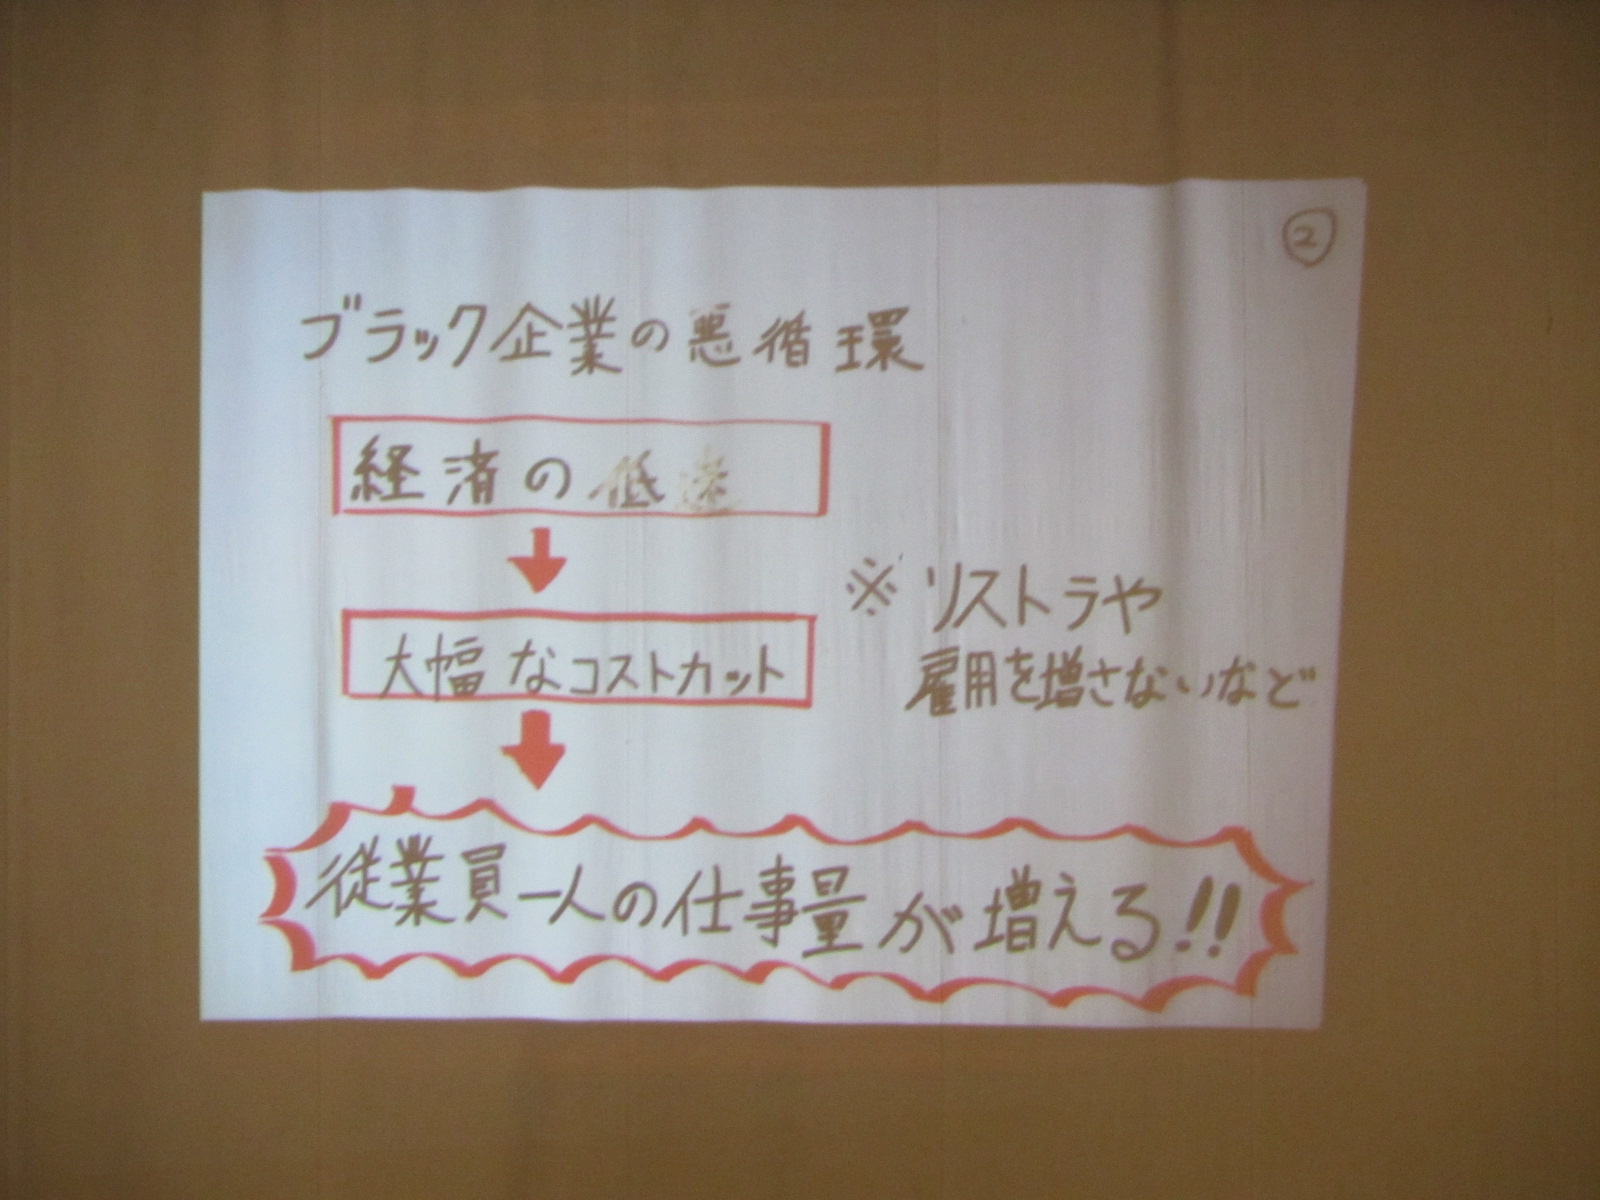 ②
ブラック企業の悪循環
経済の低迷
大幅なコストカット
※リストラや
雇用を増さないなど
従業員一人の仕事量が増える!!